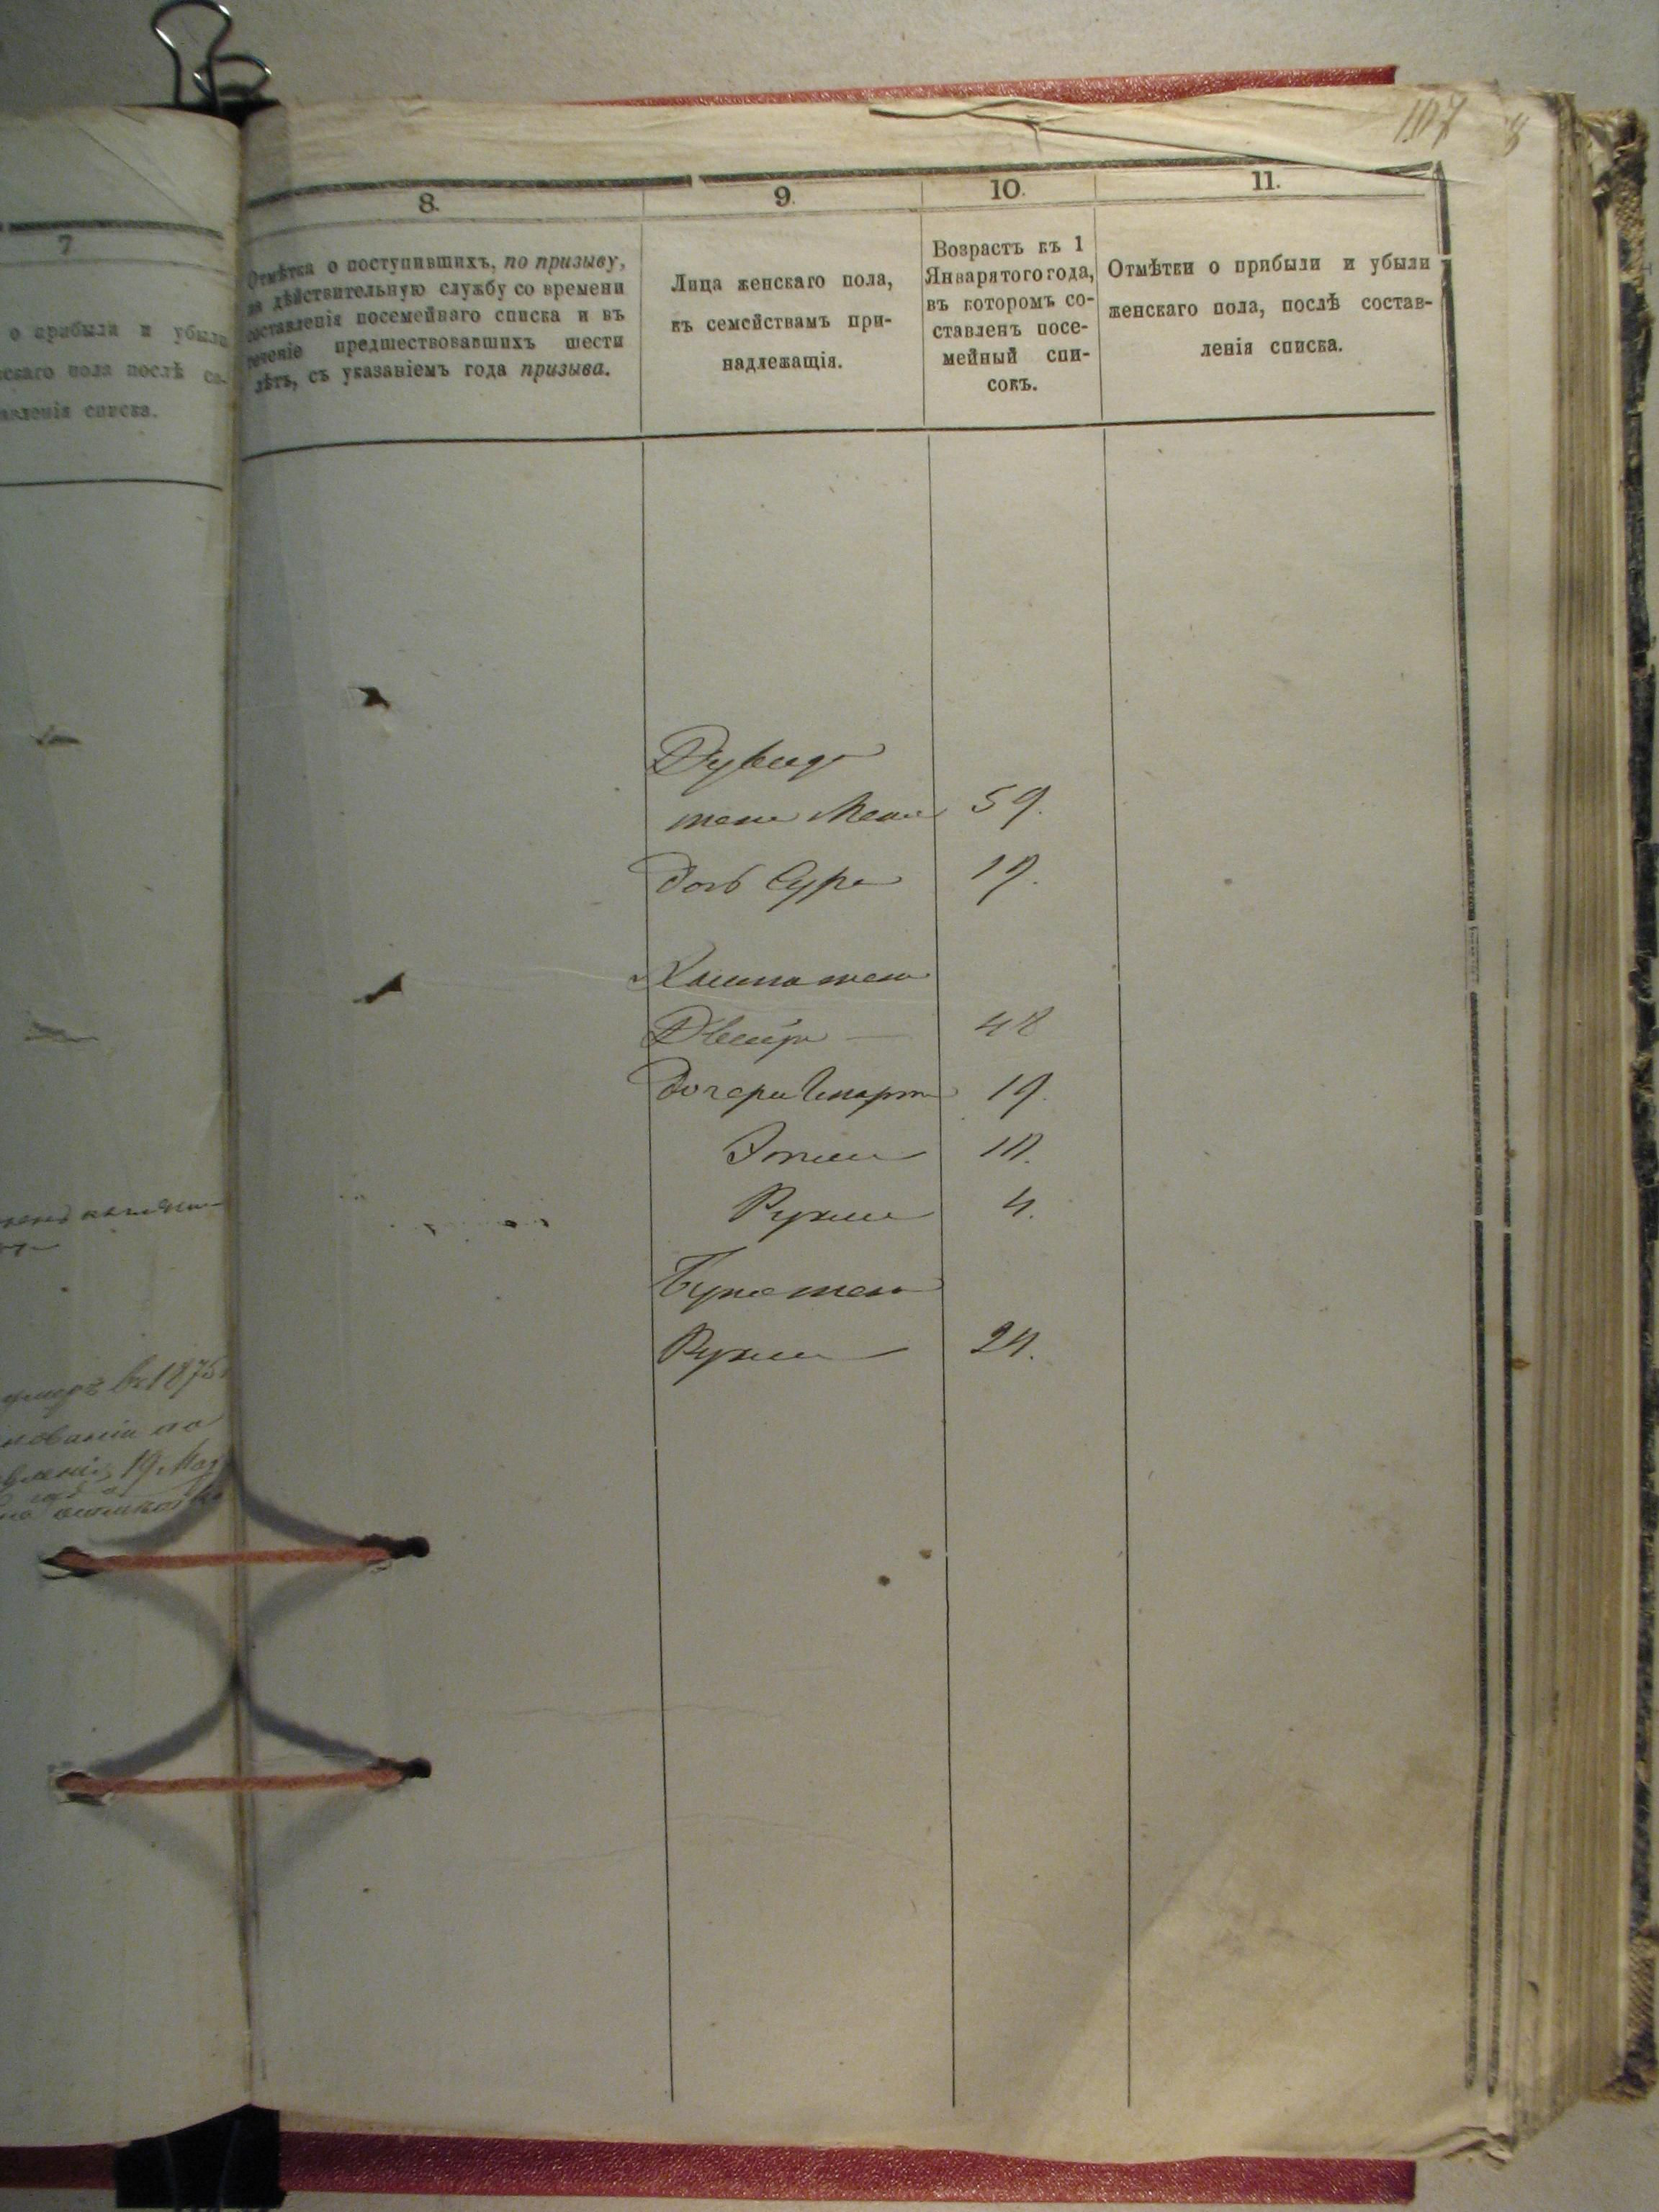 107
7
о прибыли и убыли
скаго пола послѣ со-
авленія списка.
8.
Отмѣтка о поступившихъ, по призыву,
на дѣйствительную службу со времени
составленія посемейнаго списка и въ
теченіе предшествовавшихъ шести
лѣтъ, съ указаніемъ года призыва.
9.
Лица женскаго пола,
къ семействамъ при-
надлежащія.
10.
Возрастъ къ 1
Января того года,
въ которомъ со-
ставленъ посе-
мейный спи-
сокъ.
11.
Отмѣтки о прибыли и убыли
женскаго пола, послѣ состав-
ленія списка.
жена 59.
дочь Сура 19.
жена
Двейра 48
Дочери 19.
Этля 10.
Рухля 4.
жена
Рухля 24.
въ 1875
19 Мая